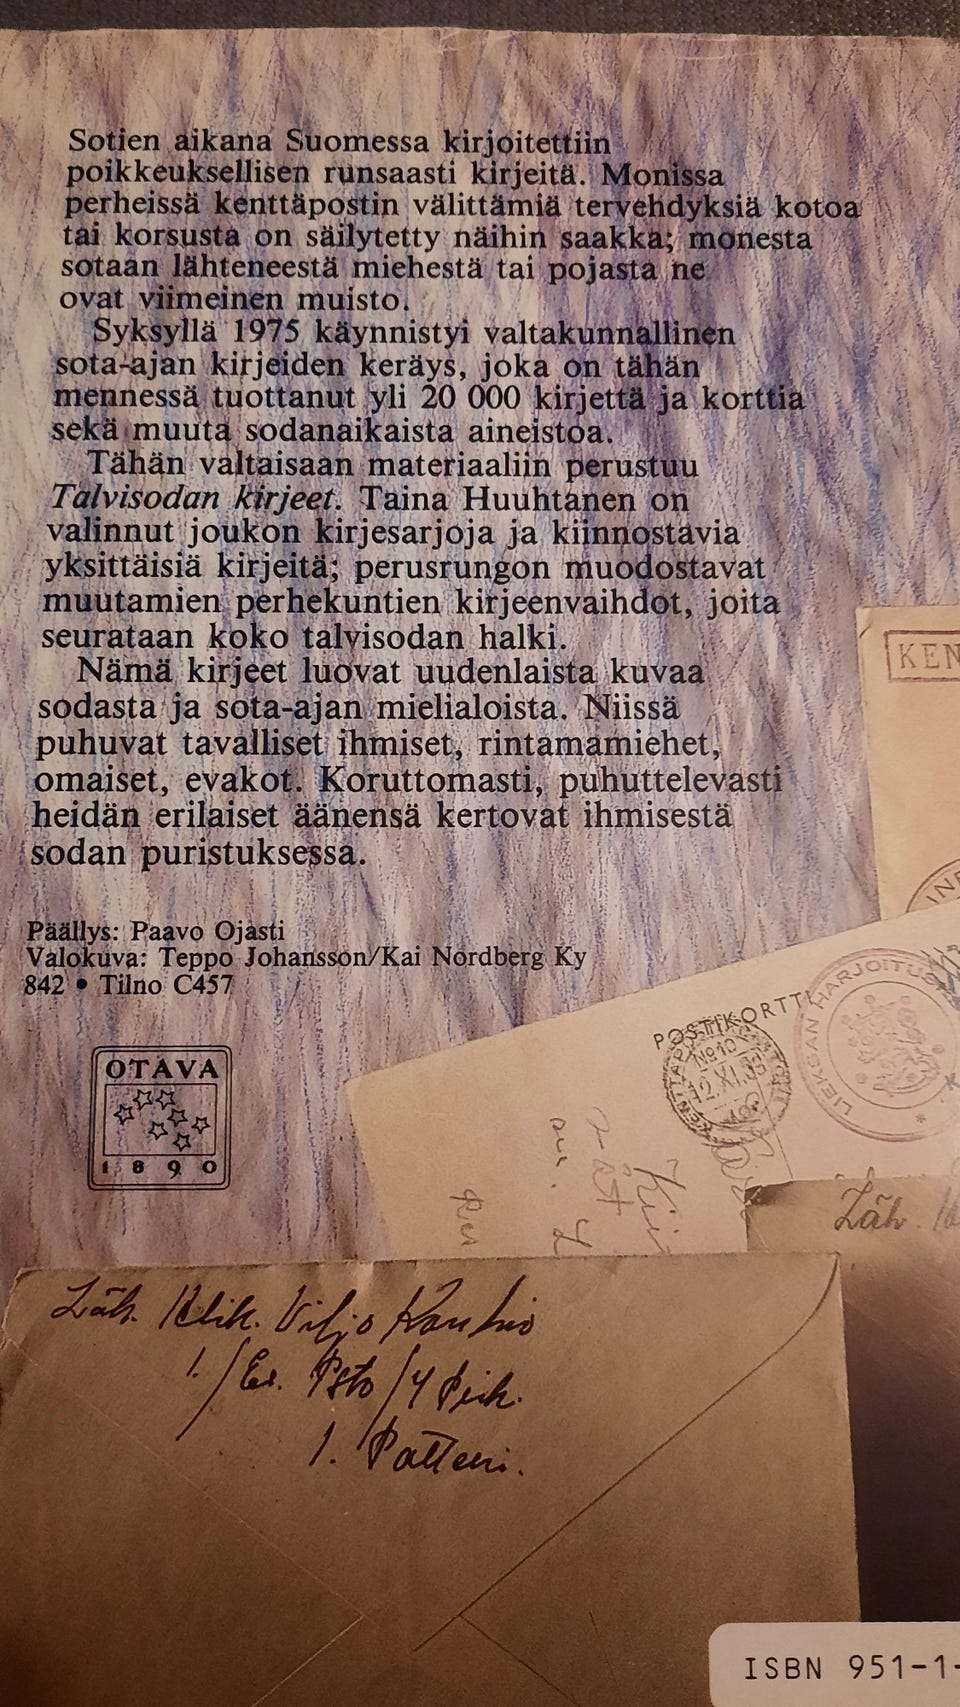 Sotien aikana Suomessa kirjoitettiin
poikkeuksellisen runsaasti kirjeitä. Monissa
perheissä kenttäpostin välittämiä tervehdyksiä kotoa
tai korsusta on säilytetty näihin saakka; monesta
sotaan lähteneestä miehestä tai pojasta ne
ovat viimeinen muisto.
Syksyllä 1975 käynnistyi valtakunnallinen
sota-ajan kirjeiden keräys, joka on tähän
mennessä tuottanut yli 20 000 kirjettä ja korttia
sekä muuta sodanaikaista aineistoa.
Tähän valtaisaan materiaaliin perustuu
Talvisodan kirjeet. Taina Huuhtanen on
valinnut joukon kirjesarjoja ja kiinnostavia
yksittäisiä kirjeitä; perusrungon muodostavat
muutamien perhekuntien kirjeenvaihdot, joita
seurataan koko talvisodan halki.
Nämä kirjeet luovat uudenlaista kuvaa
sodasta ja sota-ajan mielialoista. Niissä
puhuvat tavalliset ihmiset, rintamamiehet,
omaiset, evakot. Koruttomasti, puhuttelevasti
heidän erilaiset äänensä kertovat ihmisestä
sodan puristuksessa.
Päällys: Paavo Ojasti
Valokuva: Teppo Johansson/Kai Nordberg Ky
842 • Tilno C457
OTAVA
1890
KEN
POSTIKORTTI
LIEKSAN HARJOITUS
Läh.
Läh. Viljo
1. Patteri.
ISBN 951-1-